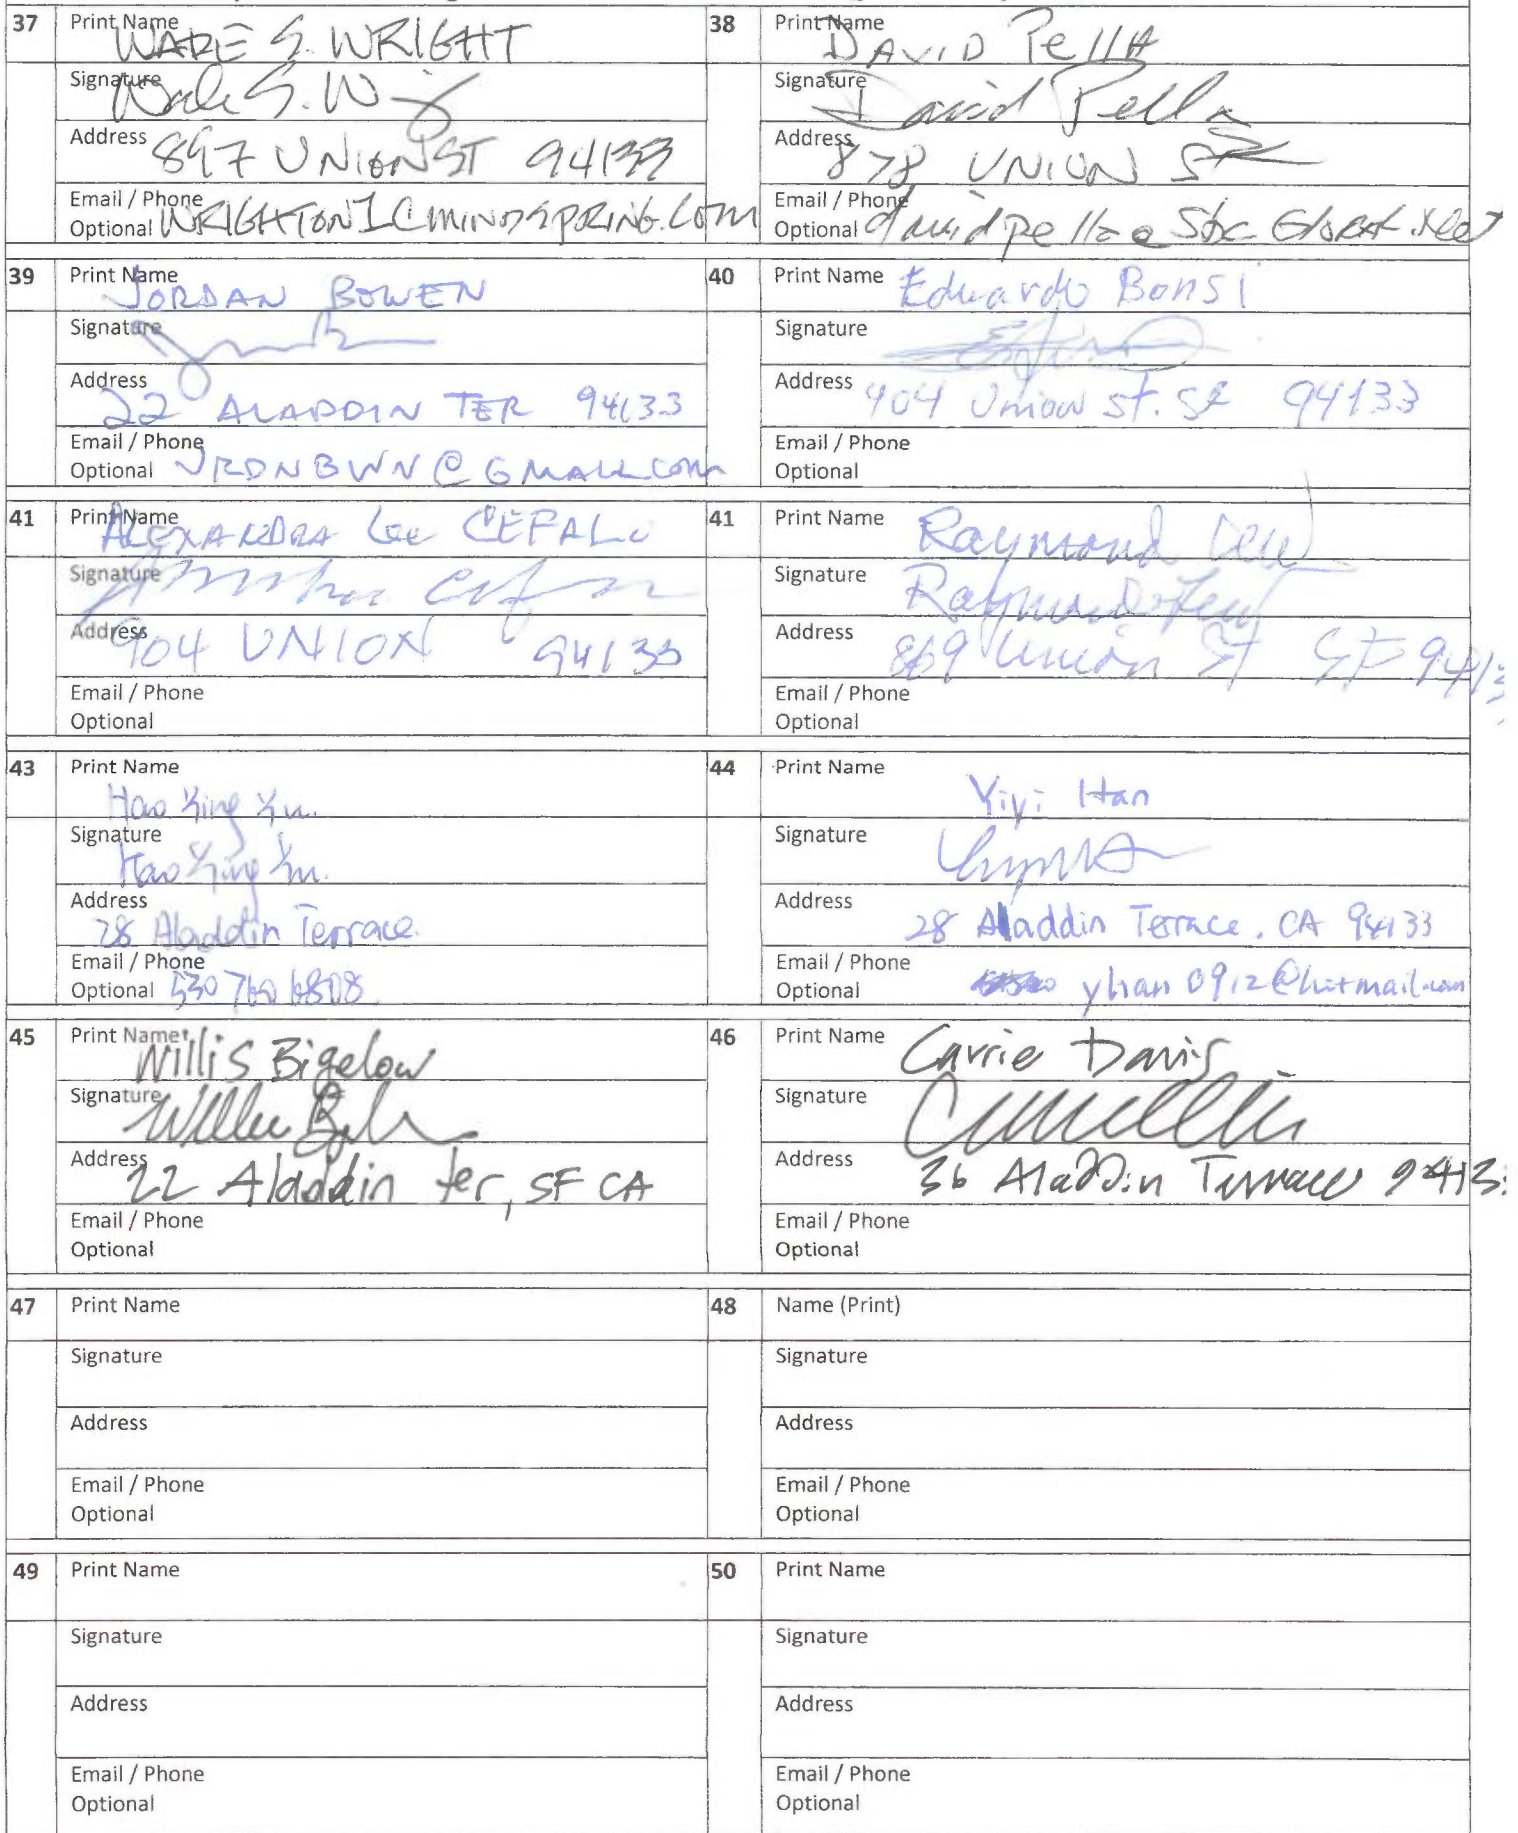 37 Print Name WADE S. WRIGHT
Signature Wade S. W
Address 897 UNION ST 94133
Email / Phone
Optional WRIGHTON1@MINDSPRING.COM
38 Print Name DAVID PellA
Signature David Pella
Address 878 UNION St
Email / Phone
Optional davidpella@sbcGlobal.Net
39 Print Name JORDAN BOWEN
Signature
Address 22 ALADDIN TER 94133
Email / Phone
Optional JRDNBWN@GMAIL.COM
40 Print Name Eduardo Bonsi
Signature
Address 904 Union st. SF 94133
Email / Phone
Optional
41 Print Name ALEXANDRA Lee CEFALU
Signature
Address 904 UNION 94133
Email / Phone
Optional
41 Print Name Raymond Lew
Signature Raymond Lew
Address 869 Union St SF 94133
Email / Phone
Optional
43 Print Name
Hao Ying Xu.
Signature
Hao Ying Xu.
Address
28 Aladdin Terrace.
Email / Phone
Optional 530 760 6808
44 Print Name
Yiyi Han
Signature
Address
28 Aladdin Terrace, CA 94133
Email / Phone
Optional yhan0912@hotmail.com
45 Print Name Willis Bigelow
Signature
Address
22 Aladdin ter, SF CA
Email / Phone
Optional
46 Print Name Carrie Davis
Signature
Address
36 Aladdin Terrace 9413
Email / Phone
Optional
47 Print Name
Signature
Address
Email / Phone
Optional
48 Name (Print)
Signature
Address
Email / Phone
Optional
49 Print Name
Signature
Address
Email / Phone
Optional
50 Print Name
Signature
Address
Email / Phone
Optional